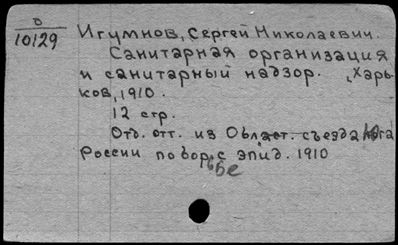 О
10129
Игумнов, Сергей Николаевич.
Санитарная организация
и санитарный надзор. Харь-
ков, 1910.
12 стр.
Отд. отт. из Област. съезда Юга
России по борьбе с эпид. 1910